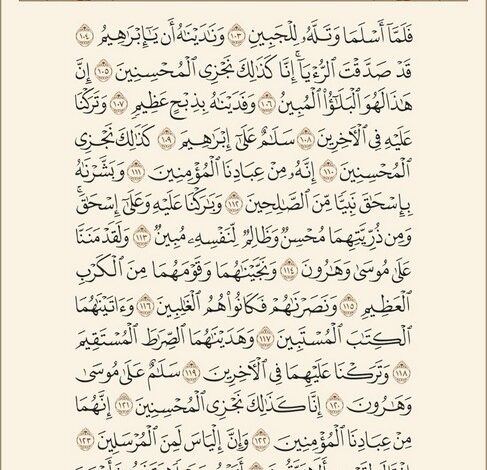 فَلَمَّآ أَسۡلَمَا وَتَلَّهُۥ لِلۡجَبِينِ ١٠٣ وَنَٰدَيۡنَٰهُ أَن يَٰٓإِبۡرَٰهِيمُ ١٠٤
قَدۡ صَدَّقۡتَ ٱلرُّءۡيَآۚ إِنَّا كَذَٰلِكَ نَجۡزِي ٱلۡمُحۡسِنِينَ ١٠٥ إِنَّ
هَٰذَا لَهُوَ ٱلۡبَلَٰٓؤُاْ ٱلۡمُبِينُ ١٠٦ وَفَدَيۡنَٰهُ بِذِبۡحٍ عَظِيمٖ ١٠٧ وَتَرَكۡنَا
عَلَيۡهِ فِي ٱلۡأٓخِرِينَ ١٠٨ سَلَٰمٌ عَلَىٰٓ إِبۡرَٰهِيمَ ١٠٩ كَذَٰلِكَ نَجۡزِي
ٱلۡمُحۡسِنِينَ ١١٠ إِنَّهُۥ مِنۡ عِبَادِنَا ٱلۡمُؤۡمِنِينَ ١١١ وَبَشَّرۡنَٰهُ
بِإِسۡحَٰقَ نَبِيّٗا مِّنَ ٱلصَّٰلِحِينَ ١١٢ وَبَٰرَكۡنَا عَلَيۡهِ وَعَلَىٰٓ إِسۡحَٰقَۚ
وَمِن ذُرِّيَّتِهِمَا مُحۡسِنٞ وَظَالِمٞ لِّنَفۡسِهِۦ مُبِينٞ ١١٣ وَلَقَدۡ مَنَنَّا
عَلَىٰ مُوسَىٰ وَهَٰرُونَ ١١٤ وَنَجَّيۡنَٰهُمَا وَقَوۡمَهُمَا مِنَ ٱلۡكَرۡبِ
ٱلۡعَظِيمِ ١١٥ وَنَصَرۡنَٰهُمۡ فَكَانُواْ هُمُ ٱلۡغَٰلِبِينَ ١١٦ وَءَاتَيۡنَٰهُمَا
ٱلۡكِتَٰبَ ٱلۡمُسۡتَبِينَ ١١٧ وَهَدَيۡنَٰهُمَا ٱلصِّرَٰطَ ٱلۡمُسۡتَقِيمَ
١١٨ وَتَرَكۡنَا عَلَيۡهِمَا فِي ٱلۡأٓخِرِينَ ١١٩ سَلَٰمٌ عَلَىٰ مُوسَىٰ
وَهَٰرُونَ ١٢٠ إِنَّا كَذَٰلِكَ نَجۡزِي ٱلۡمُحۡسِنِينَ ١٢١ إِنَّهُمَا
مِنۡ عِبَادِنَا ٱلۡمُؤۡمِنِينَ ١٢٢ وَإِنَّ إِلۡيَاسَ لَمِنَ ٱلۡمُرۡسَلِينَ ١٢٣